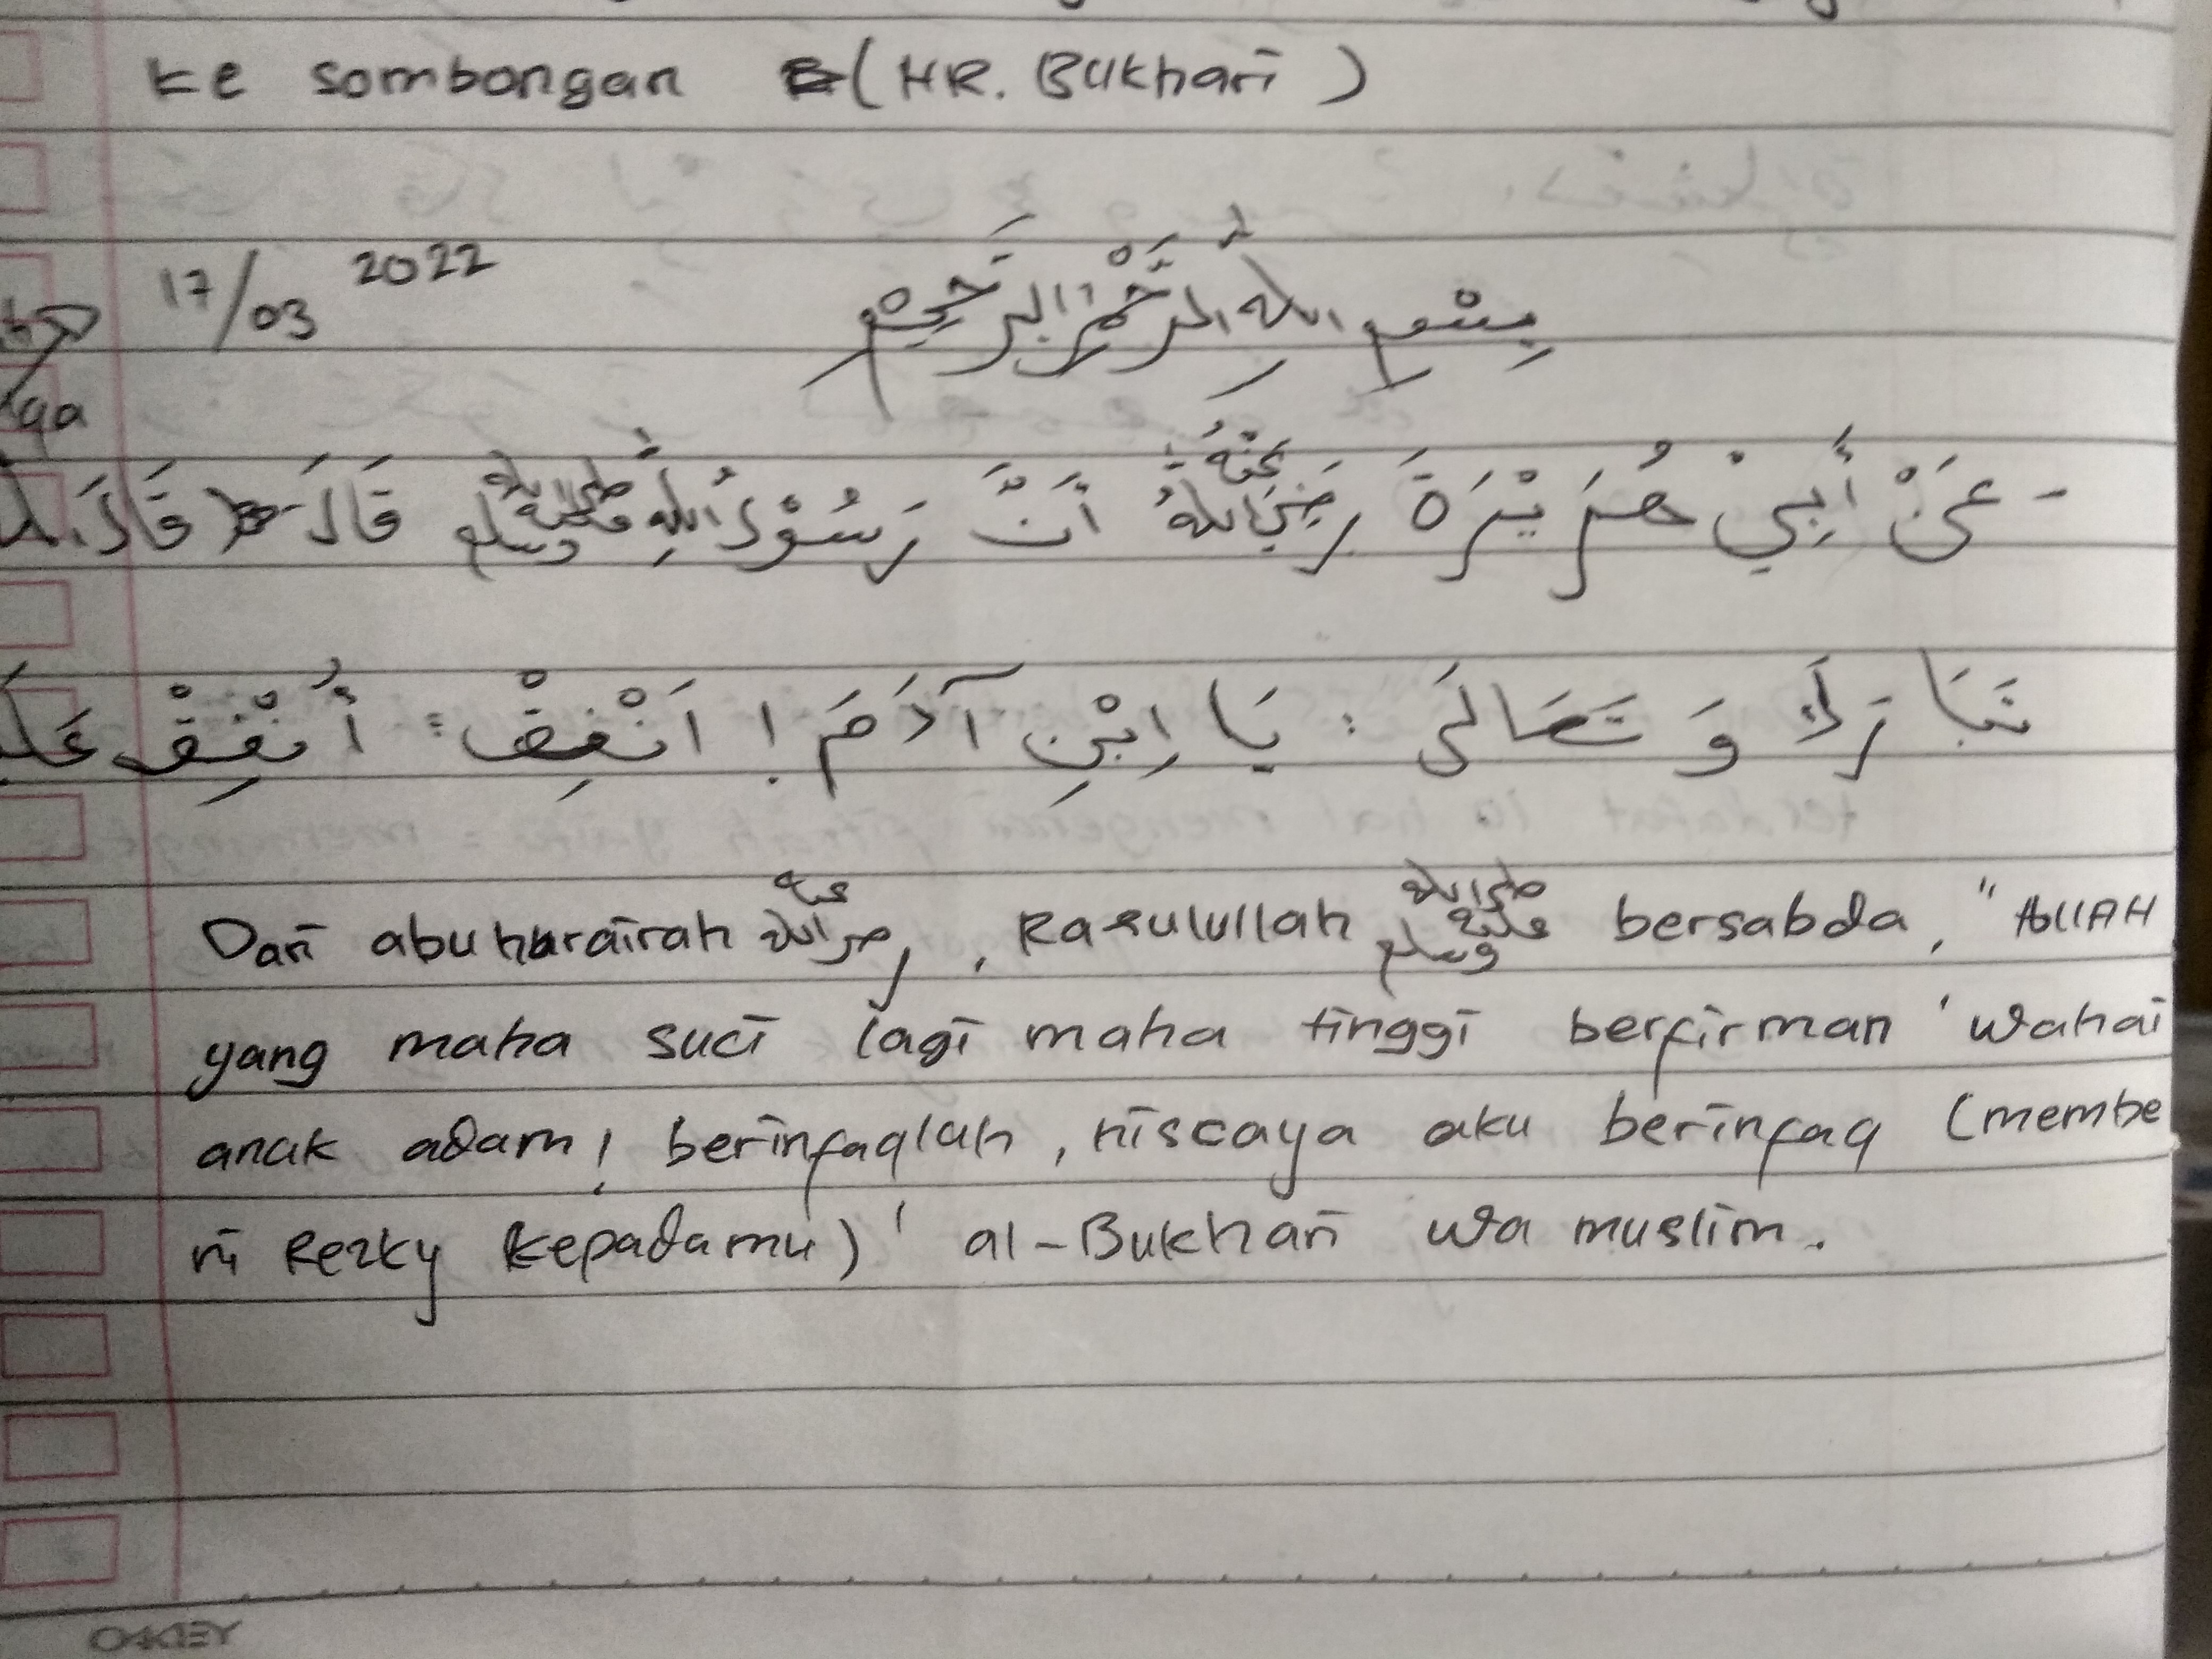 ke sombongan (HR. Bukhari)
17/03 2022
بِسْمِ اللّٰهِ الرَّحْمٰنِ الرَّحِيْمِ
- عَنْ أَبِيْ هُرَيْرَةَ رَضِيَ اللهُ عَنْهُ أَنَّ رَسُوْلَ اللّٰهِ صلى الله عليه وسلم قَالَ قَالَ
تَبَارَكَ وَ تَعَالَى : يَا ابْنِ آدَمَ ! اَنْفِقْ : أُنْفِقْ
Dari abu hurairah رضي الله عنه , Rasulullah صلى الله عليه وسلم bersabda, "AllAH
yang maha suci lagi maha tinggi berfirman 'wahai
anak adam! berinfaqlah, niscaya aku berinfaq (membe
ri Rezky kepadamu)' al-Bukhari wa muslim.
OAKLEY